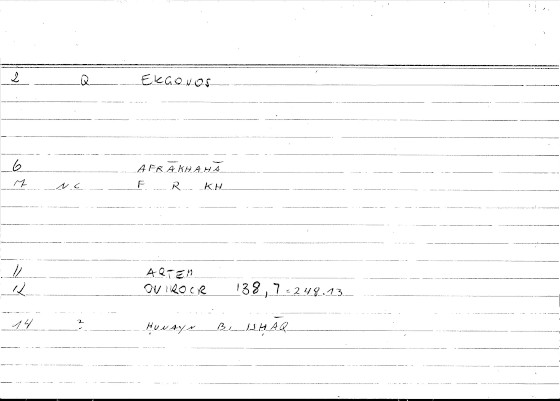 2 Q EKGONOS
6 AFRĀKHAHĀ
M NC F R KH
11 ARTEM
12 OVIROCR 138,7=249.13
14 ? ḤUNAYN B. ISḤĀQ